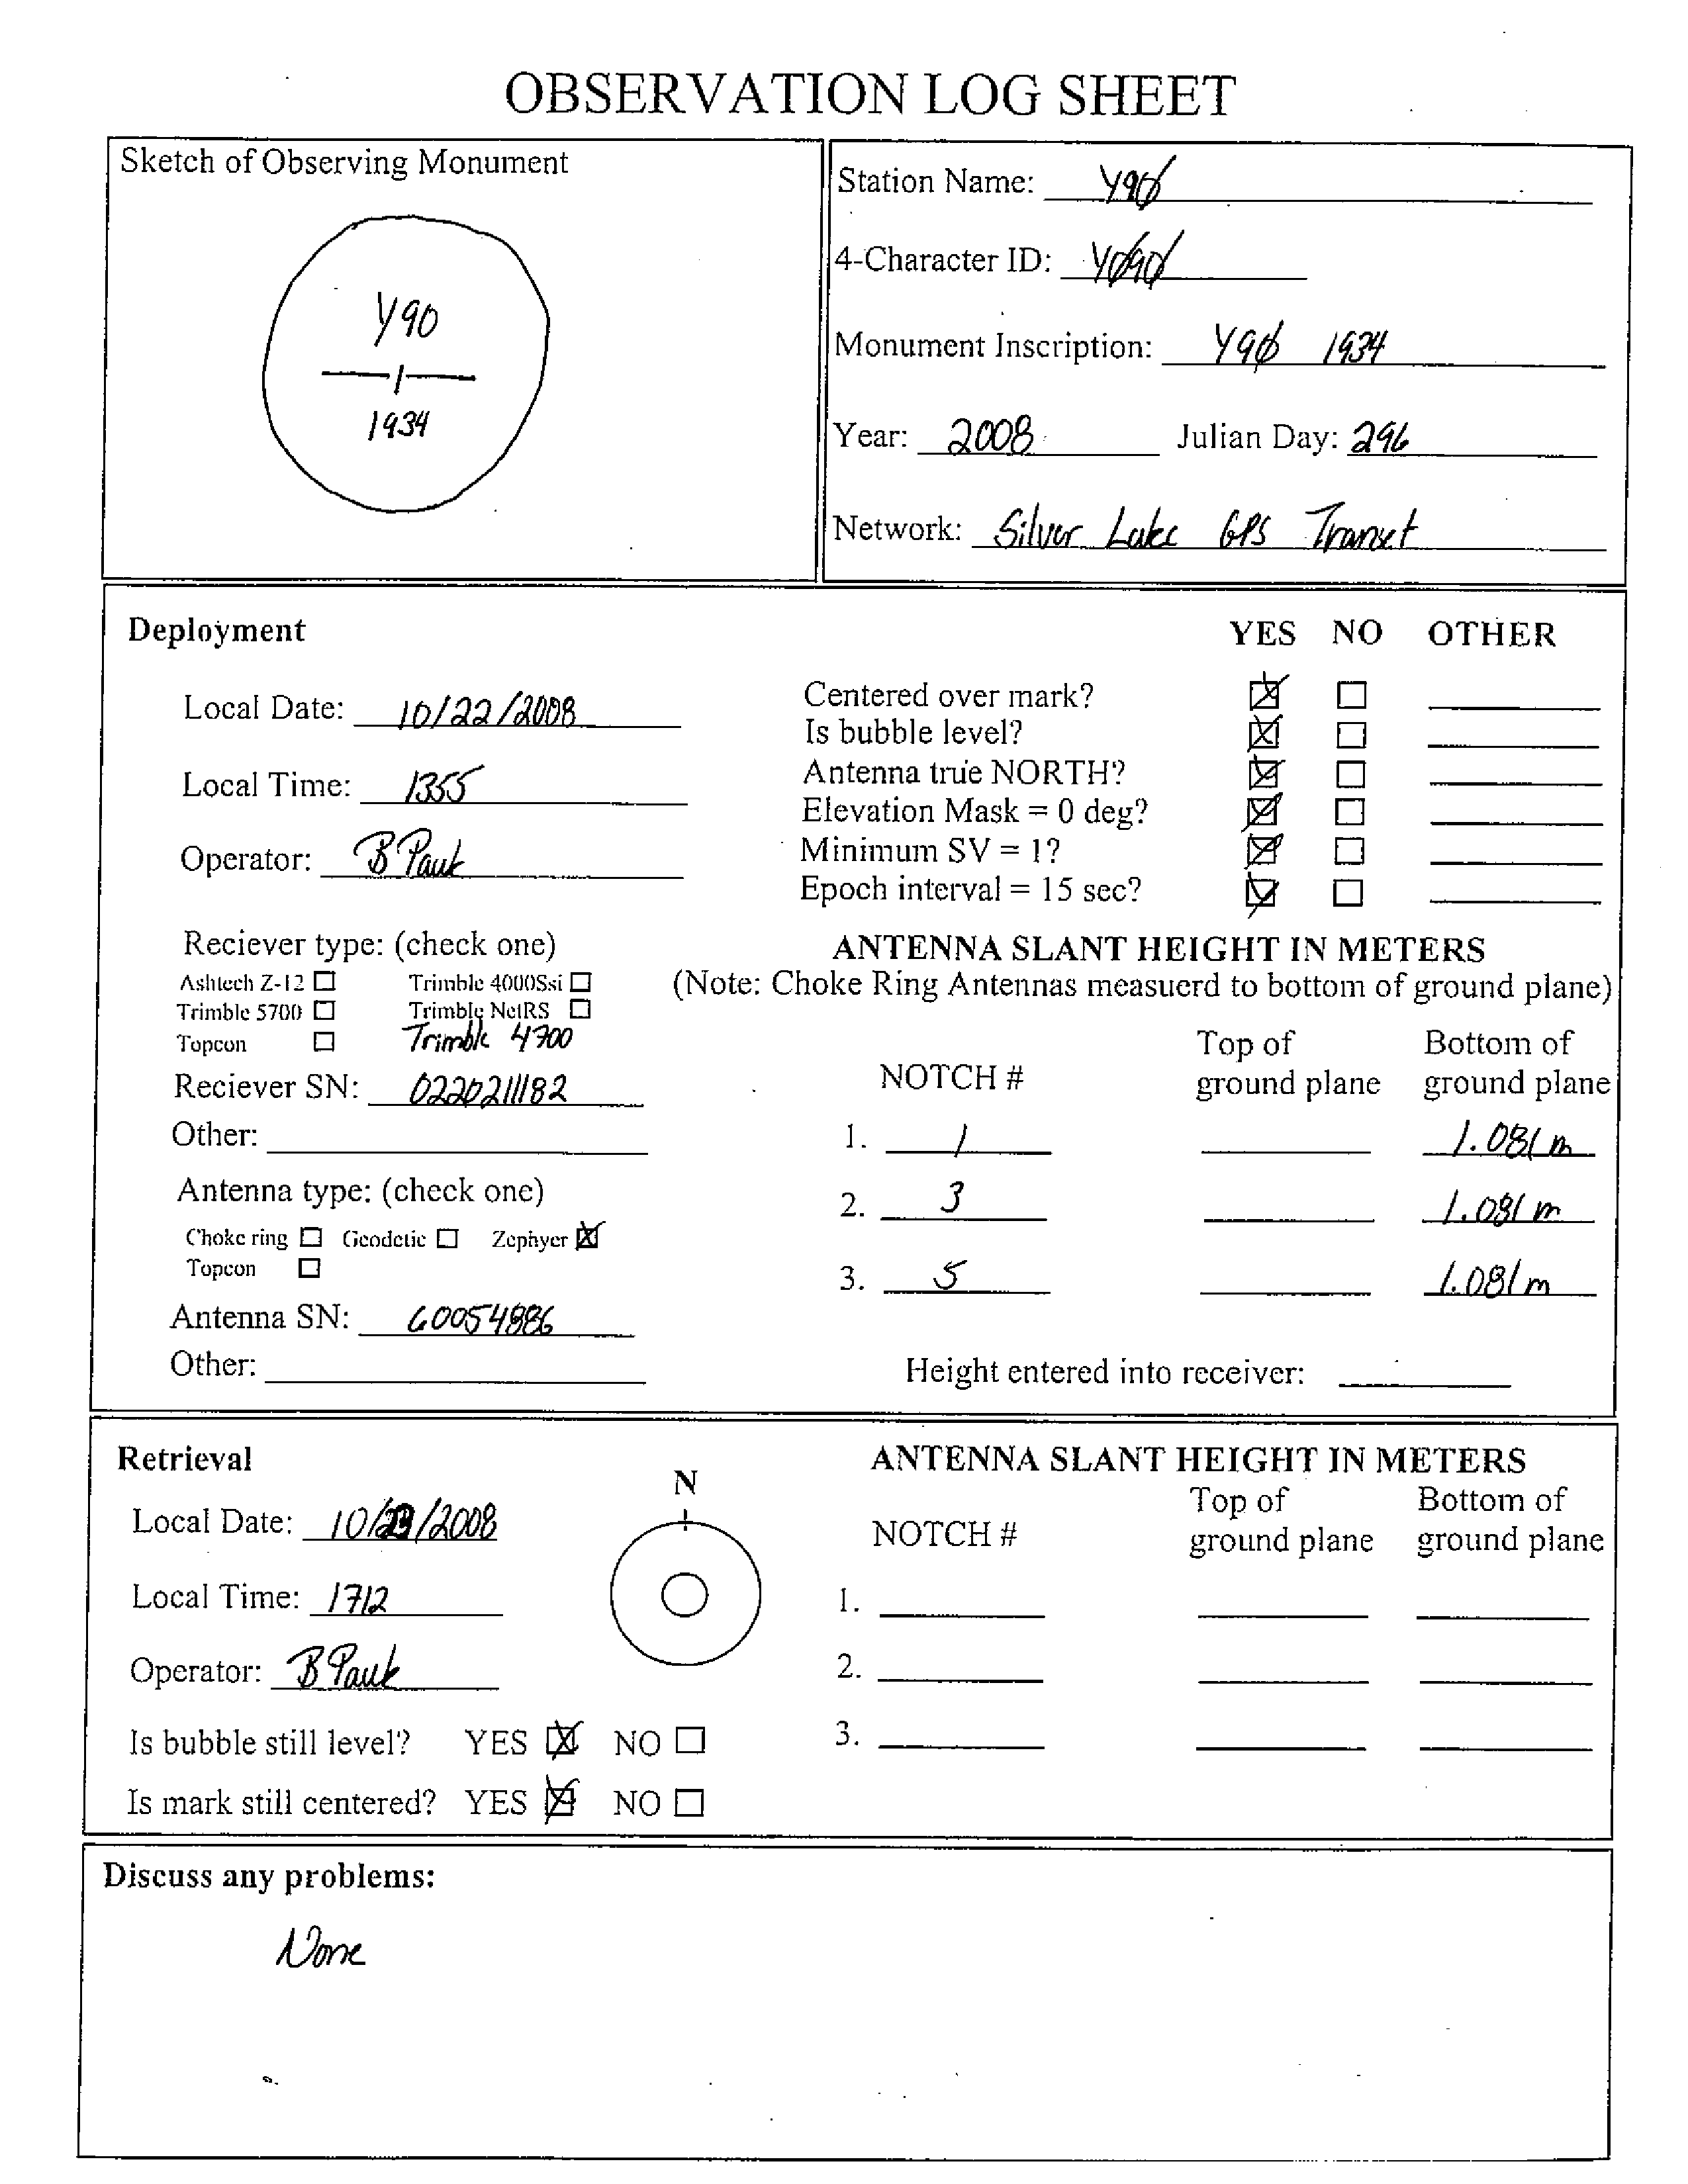 OBSERVATION LOG SHEET
Sketch of Observing Monument
Y90
1934
Station Name: Y90
4-Character ID: Y090
Monument Inscription: Y90 1934
Year: 2008 Julian Day: 296
Network: Silver Lake GPS Transet
Deployment
YES NO OTHER
Local Date: 10/22/2008
Local Time: 1355
Operator: B Pauk
Centered over mark?
Is bubble level?
Antenna true NORTH?
Elevation Mask = 0 deg?
Minimum SV = 1?
Epoch interval = 15 sec?
Reciever type: (check one)
Ashtech Z-12 Trimble 4000Ssi
Trimble 5700 Trimble NetRS
Topcon Trimble 4700
Reciever SN: 0220211182
Other:
Antenna type: (check one)
Choke ring Geodetic Zephyer
Topcon
Antenna SN: 60054886
Other:
ANTENNA SLANT HEIGHT IN METERS
(Note: Choke Ring Antennas measuerd to bottom of ground plane)
NOTCH # Top of ground plane Bottom of ground plane
1. 1 1.081 m
2. 3 1.081 m
3. 5 1.081 m
Height entered into receiver:
Retrieval
Local Date: 10/23/2008
Local Time: 1712
Operator: B Pauk
Is bubble still level? YES NO
Is mark still centered? YES NO
N
ANTENNA SLANT HEIGHT IN METERS
NOTCH # Top of ground plane Bottom of ground plane
1.
2.
3.
Discuss any problems:
None